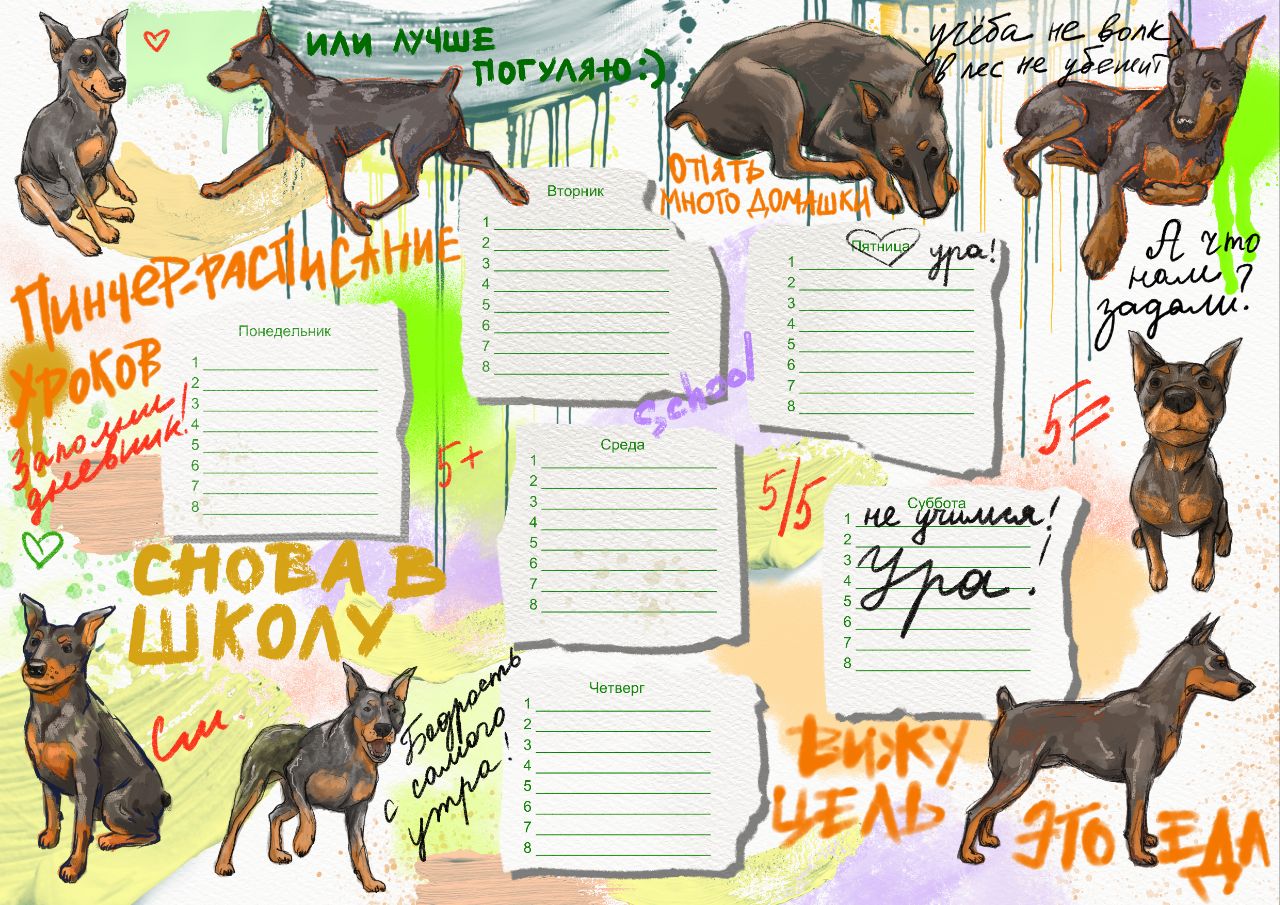 или лучше
погуляю:)
учёба не волк,
в лес не убежит
Опять
много домашки
Пинчер-расписание
уроков
Запомни
дневник!
Понедельник
1
2
3
4
5
6
7
8
Вторник
1
2
3
4
5
6
7
8
Пятница ура!
1
2
3
4
5
6
7
8
А что
нам
задали?
School
5+
5/5
5=
Среда
1
2
3
4
5
6
7
8
Суббота
1 не учимся!
2
3 Ура!
4
5
6
7
8
Снова в
школу
См.
Бодрость
с самого
утра!
Четверг
1
2
3
4
5
6
7
8
Вижу
цель
это еда